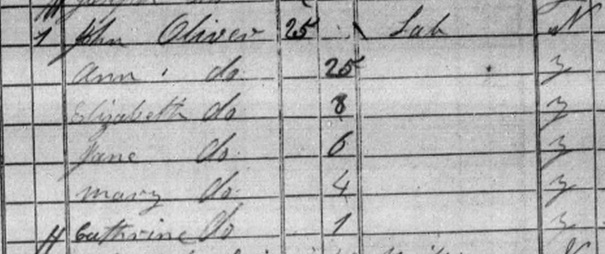 1 John Oliver 25 Lab N
Ann do 25 y
Elizabeth do 8 y
Jane do 6 y
Mary do 4 y
// Cathrine do 1 y